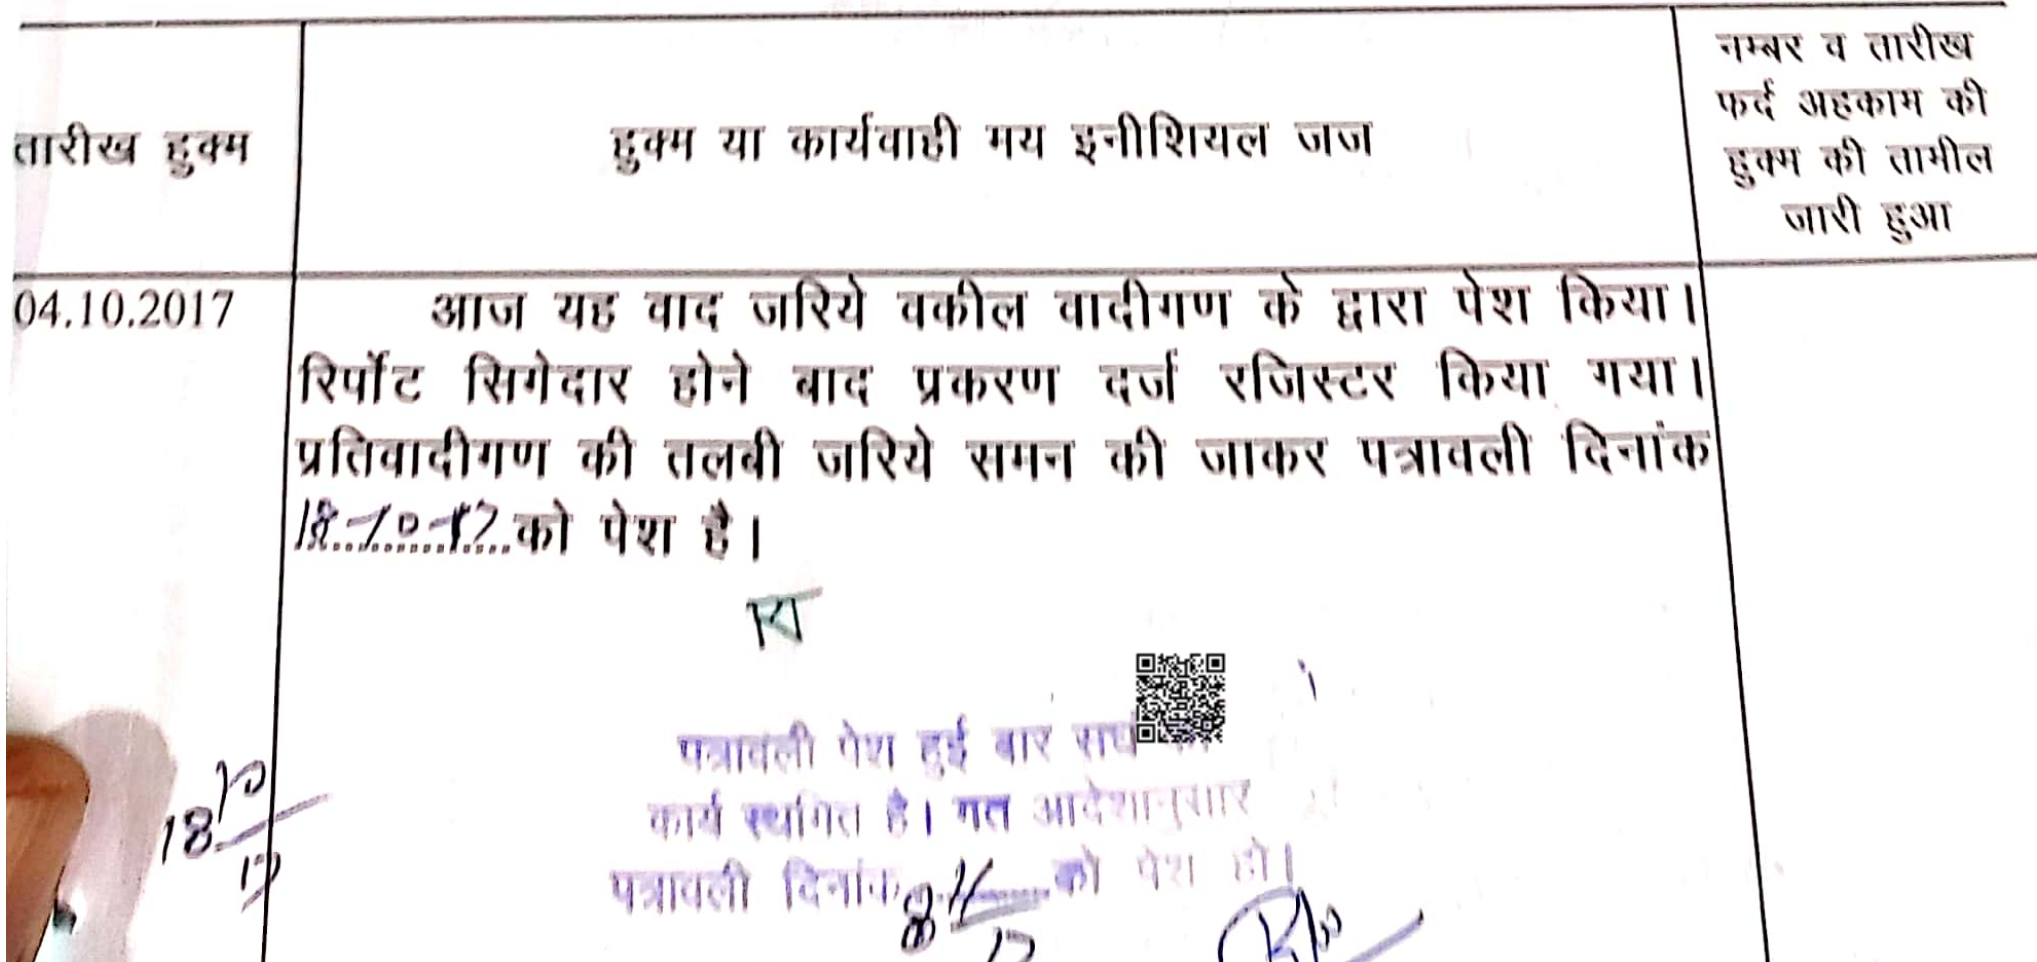 तारीख हुक्म
हुक्म या कार्यवाही मय इनीशियल जज
नम्बर व तारीख
फर्द अहकाम की
हुक्म की तामील
जारी हुआ
04.10.2017
आज यह वाद जरिये वकील वादीगण के द्वारा पेश किया।
रिर्पोट सिगेदार होने बाद प्रकरण दर्ज रजिस्टर किया गया।
प्रतिवादीगण की तलबी जरिये समन की जाकर पत्रावली दिनांक
18-10-17 को पेश है।
18 10/17
पत्रावली पेश हुई बार
कार्य स्थगित है। गत आदेशानुसार
पत्रावली दिनांक 8 11/17 को पेश हो।